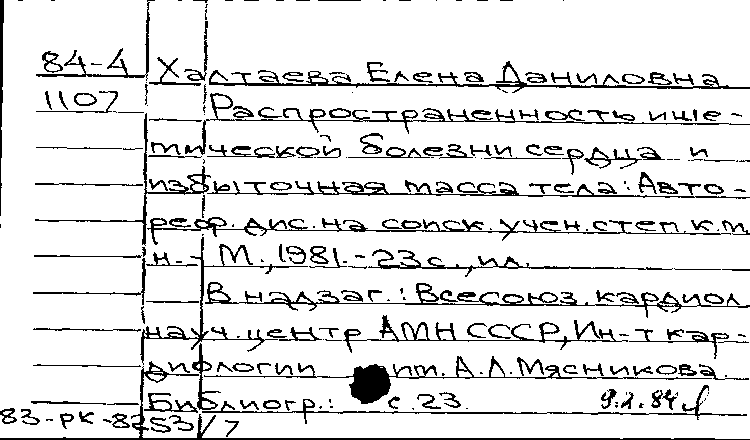 84-4 Халтаева Елена Даниловна
1107 Распространенность ише-
мической болезни сердца и
избыточная масса тела: Авто-
реф. дис. на соиск. учен. степ. к.м.
н. - М., 1981. - 23 с., ил.
В надзаг.: Всесоюз. кардиол.
науч. центр АМН СССР, Ин-т кар-
диологии им. А.Л. Мясникова.
Библиогр.: с. 23. 9.2.84
83-РК-8253/7